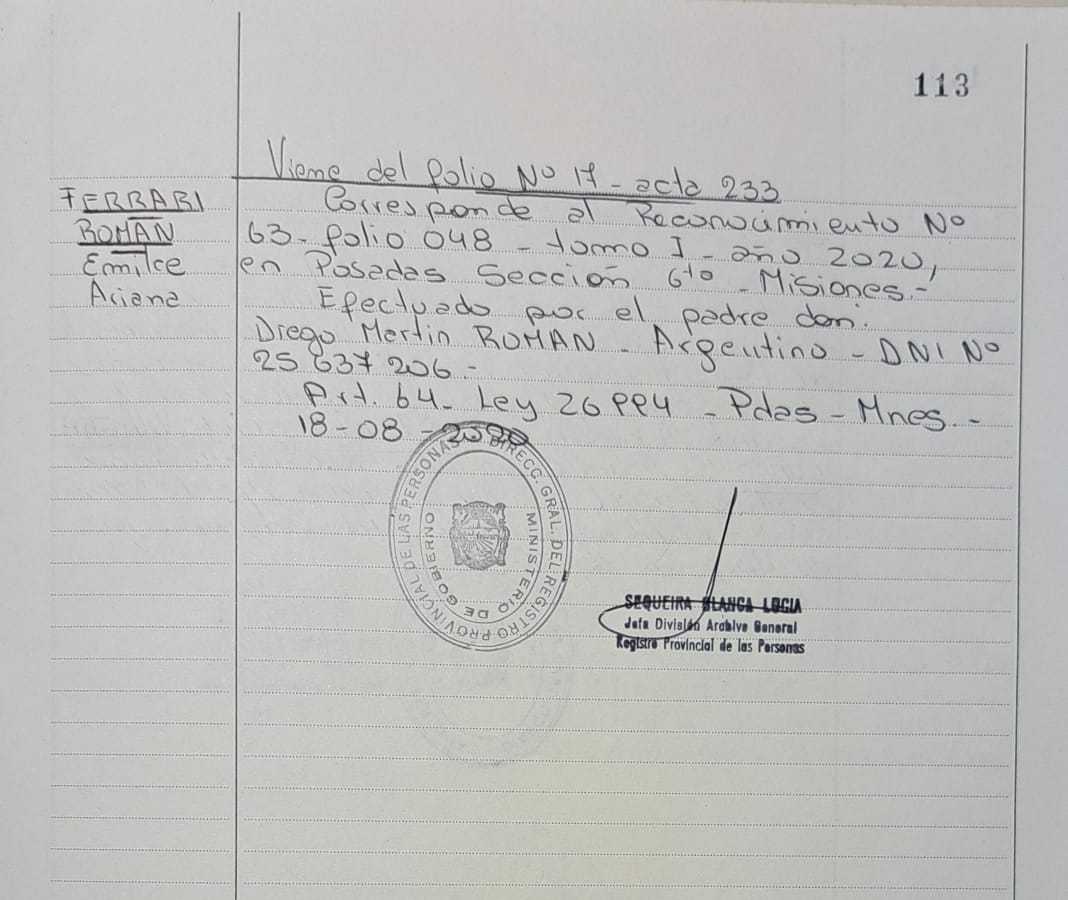 113
Viene del folio Nº 17 - acta 233
FERRARI
ROMAN
Emilce
Ariana
Corresponde al Reconocimiento Nº
63 - folio 048 - tomo I - año 2020,
en Posadas Sección 6to - Misiones.-
Efectuado por el padre don:
Diego Martin ROMAN - Argentino - DNI Nº
25 637 206.-
Art. 64 - Ley 26994 - Pdas - Mnes.-
18-08-2020
DIRECC. GRAL. DEL REGISTRO PROVINCIAL DE LAS PERSONAS
MINISTERIO DE GOBIERNO
SEQUEIRA BLANCA LUCIA
Jefa División Archivo General
Registro Provincial de las Personas